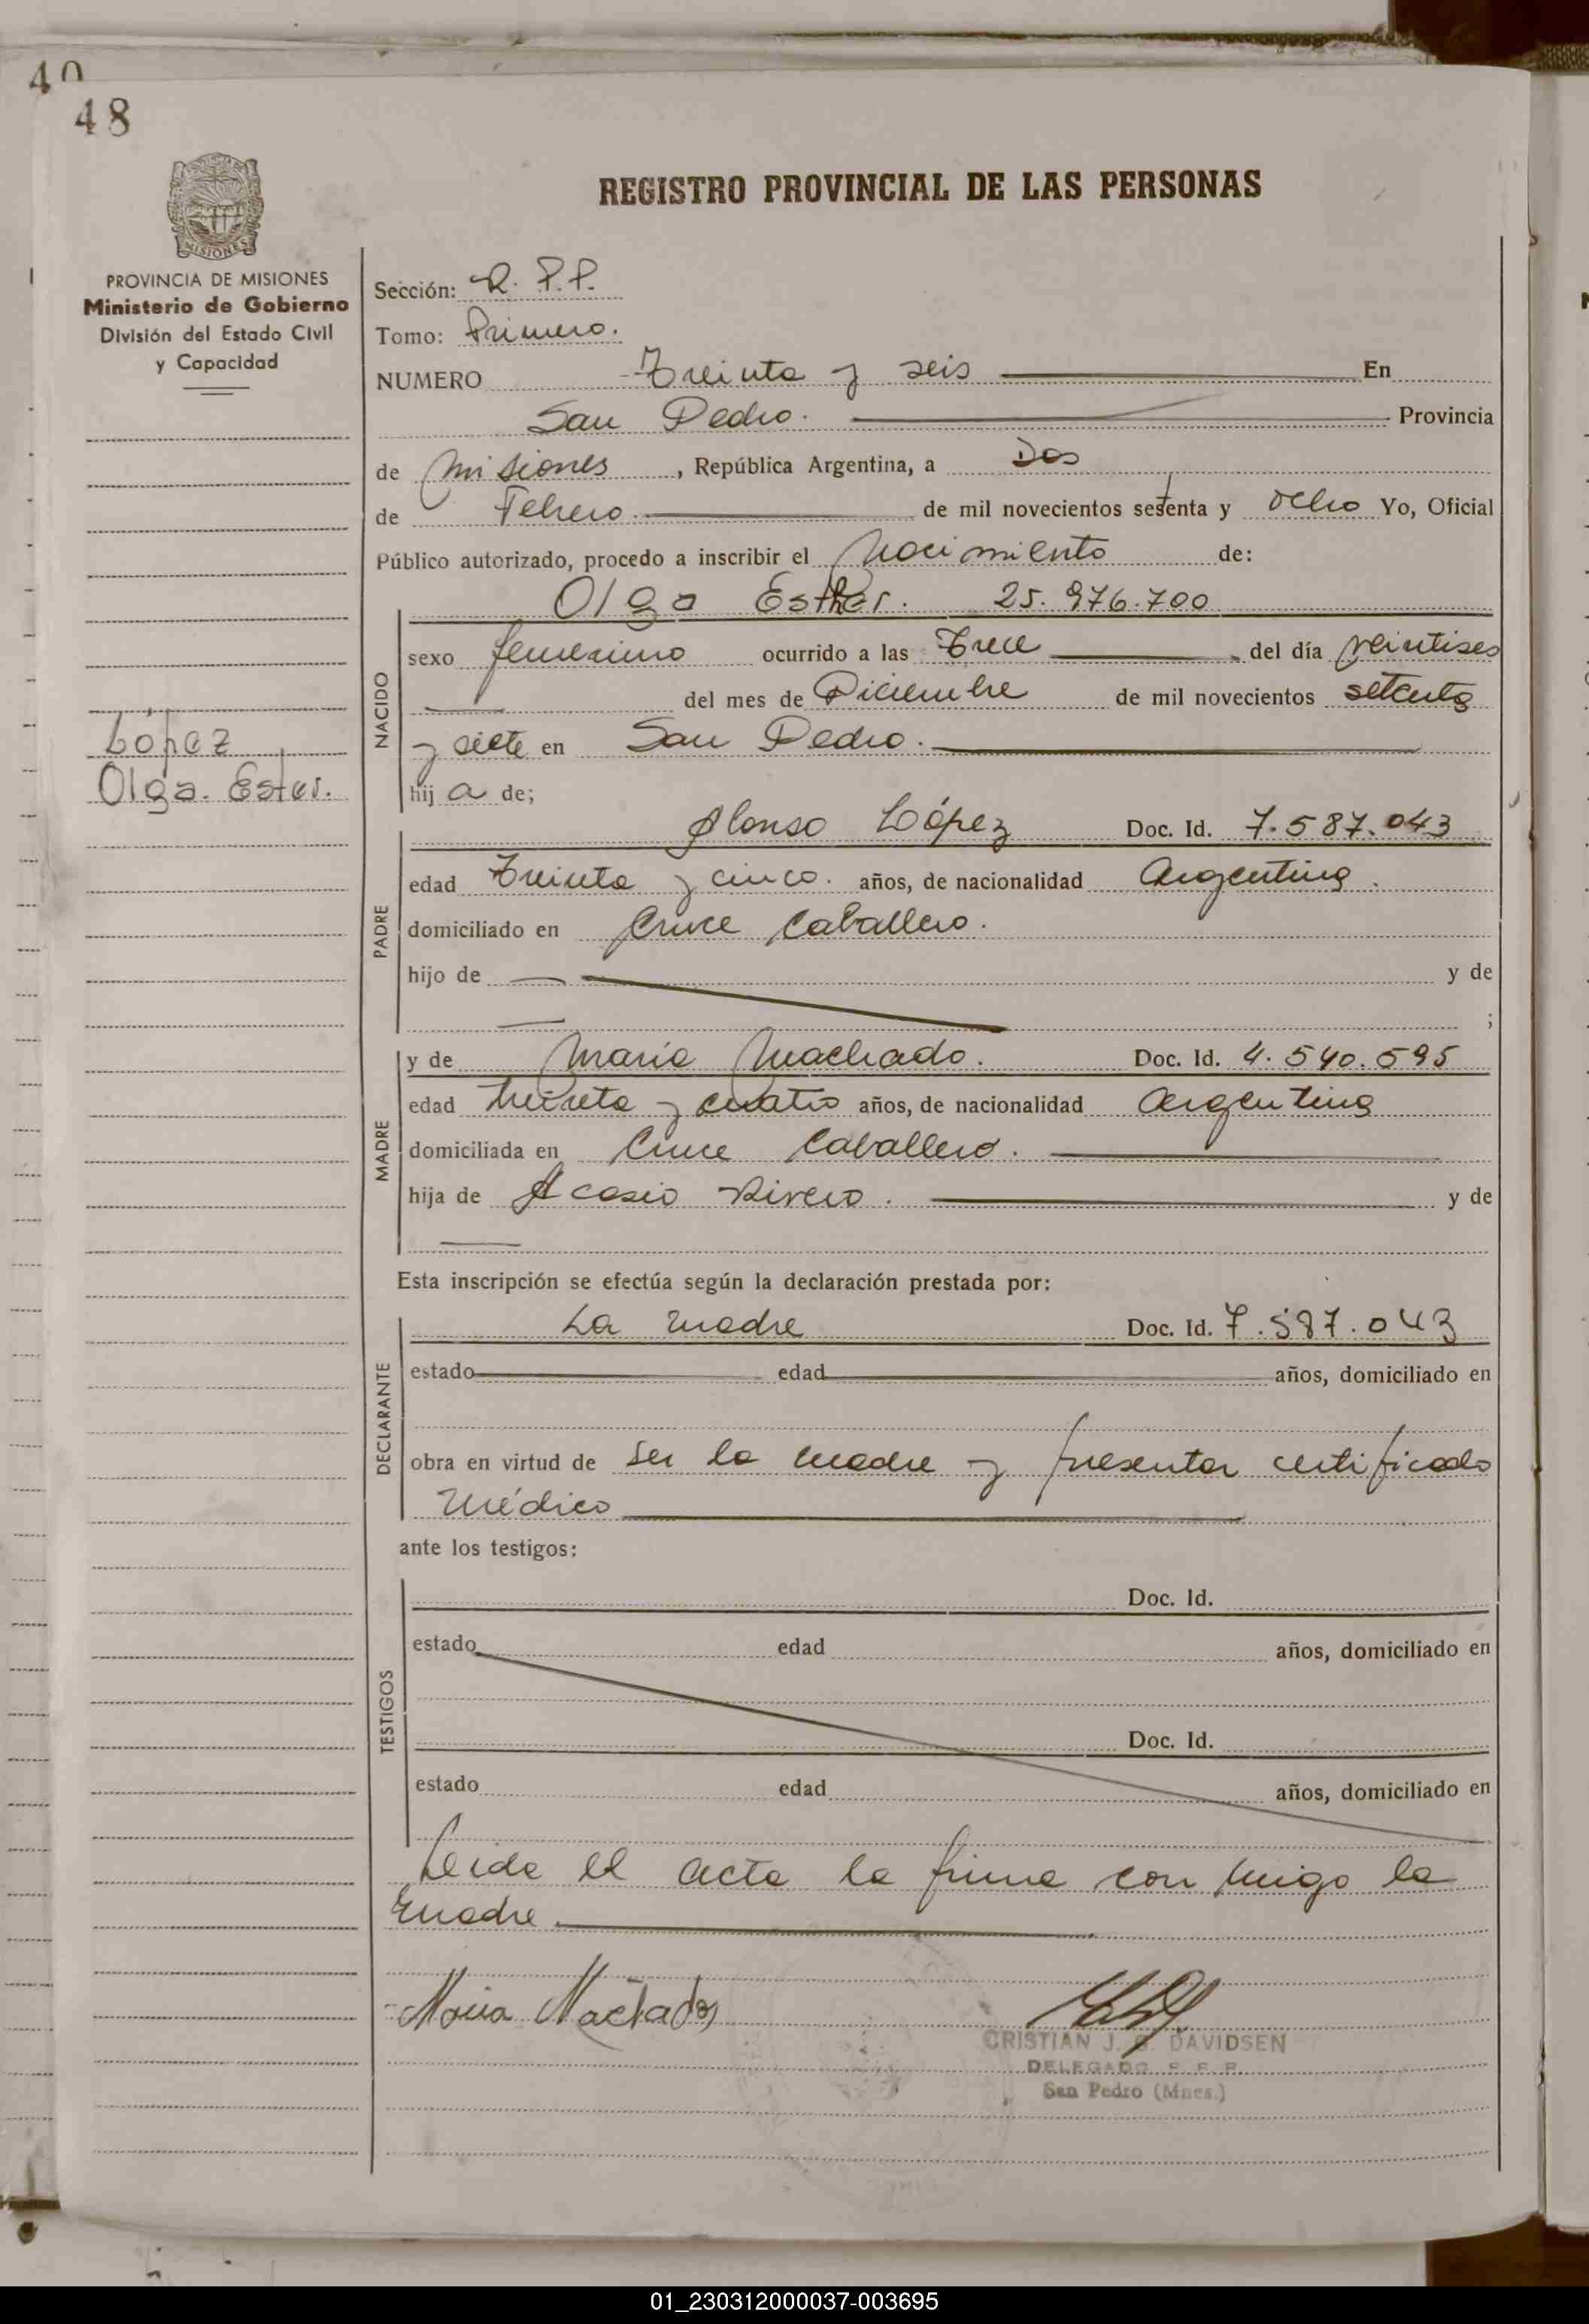 40
48
MISIONES
PROVINCIA DE MISIONES
Ministerio de Gobierno
División del Estado Civil
y Capacidad
López
Olga. Ester.
REGISTRO PROVINCIAL DE LAS PERSONAS
Sección: R. P.P.
Tomo: Primero.
NUMERO Treinta y seis En
San Pedro. Provincia
de Misiones, República Argentina, a Dos
de Febrero. de mil novecientos setenta y ocho Yo, Oficial
Público autorizado, procedo a inscribir el Nacimiento de:
Olga Esther. 25.976.700
NACIDO
sexo femenino ocurrido a las Trece del día veintises
del mes de Diciembre de mil novecientos setenta
y siete en San Pedro.
hij a de;
PADRE
Alonso López Doc. Id. 7.587.043
edad Treinta y cinco. años, de nacionalidad Argentina.
domiciliado en Cruce Caballero.
hijo de y de
;
MADRE
y de María Machado. Doc. Id. 4.540.595
edad treinta y cuatro años, de nacionalidad Argentina
domiciliada en Cruce Caballero.
hija de Acasio Rivero. y de
Esta inscripción se efectúa según la declaración prestada por:
DECLARANTE
La madre Doc. Id. 7.587.043
estado edad años, domiciliado en
obra en virtud de ser la madre y presentar certificado
Médico
ante los testigos:
TESTIGOS
Doc. Id.
estado edad años, domiciliado en
Doc. Id.
estado edad años, domiciliado en
Leida el acta la firma con migo la
madre
Maria Machado
CRISTIAN J. DAVIDSEN
DELEGADO
San Pedro (Mnes.)
01_230312000037-003695